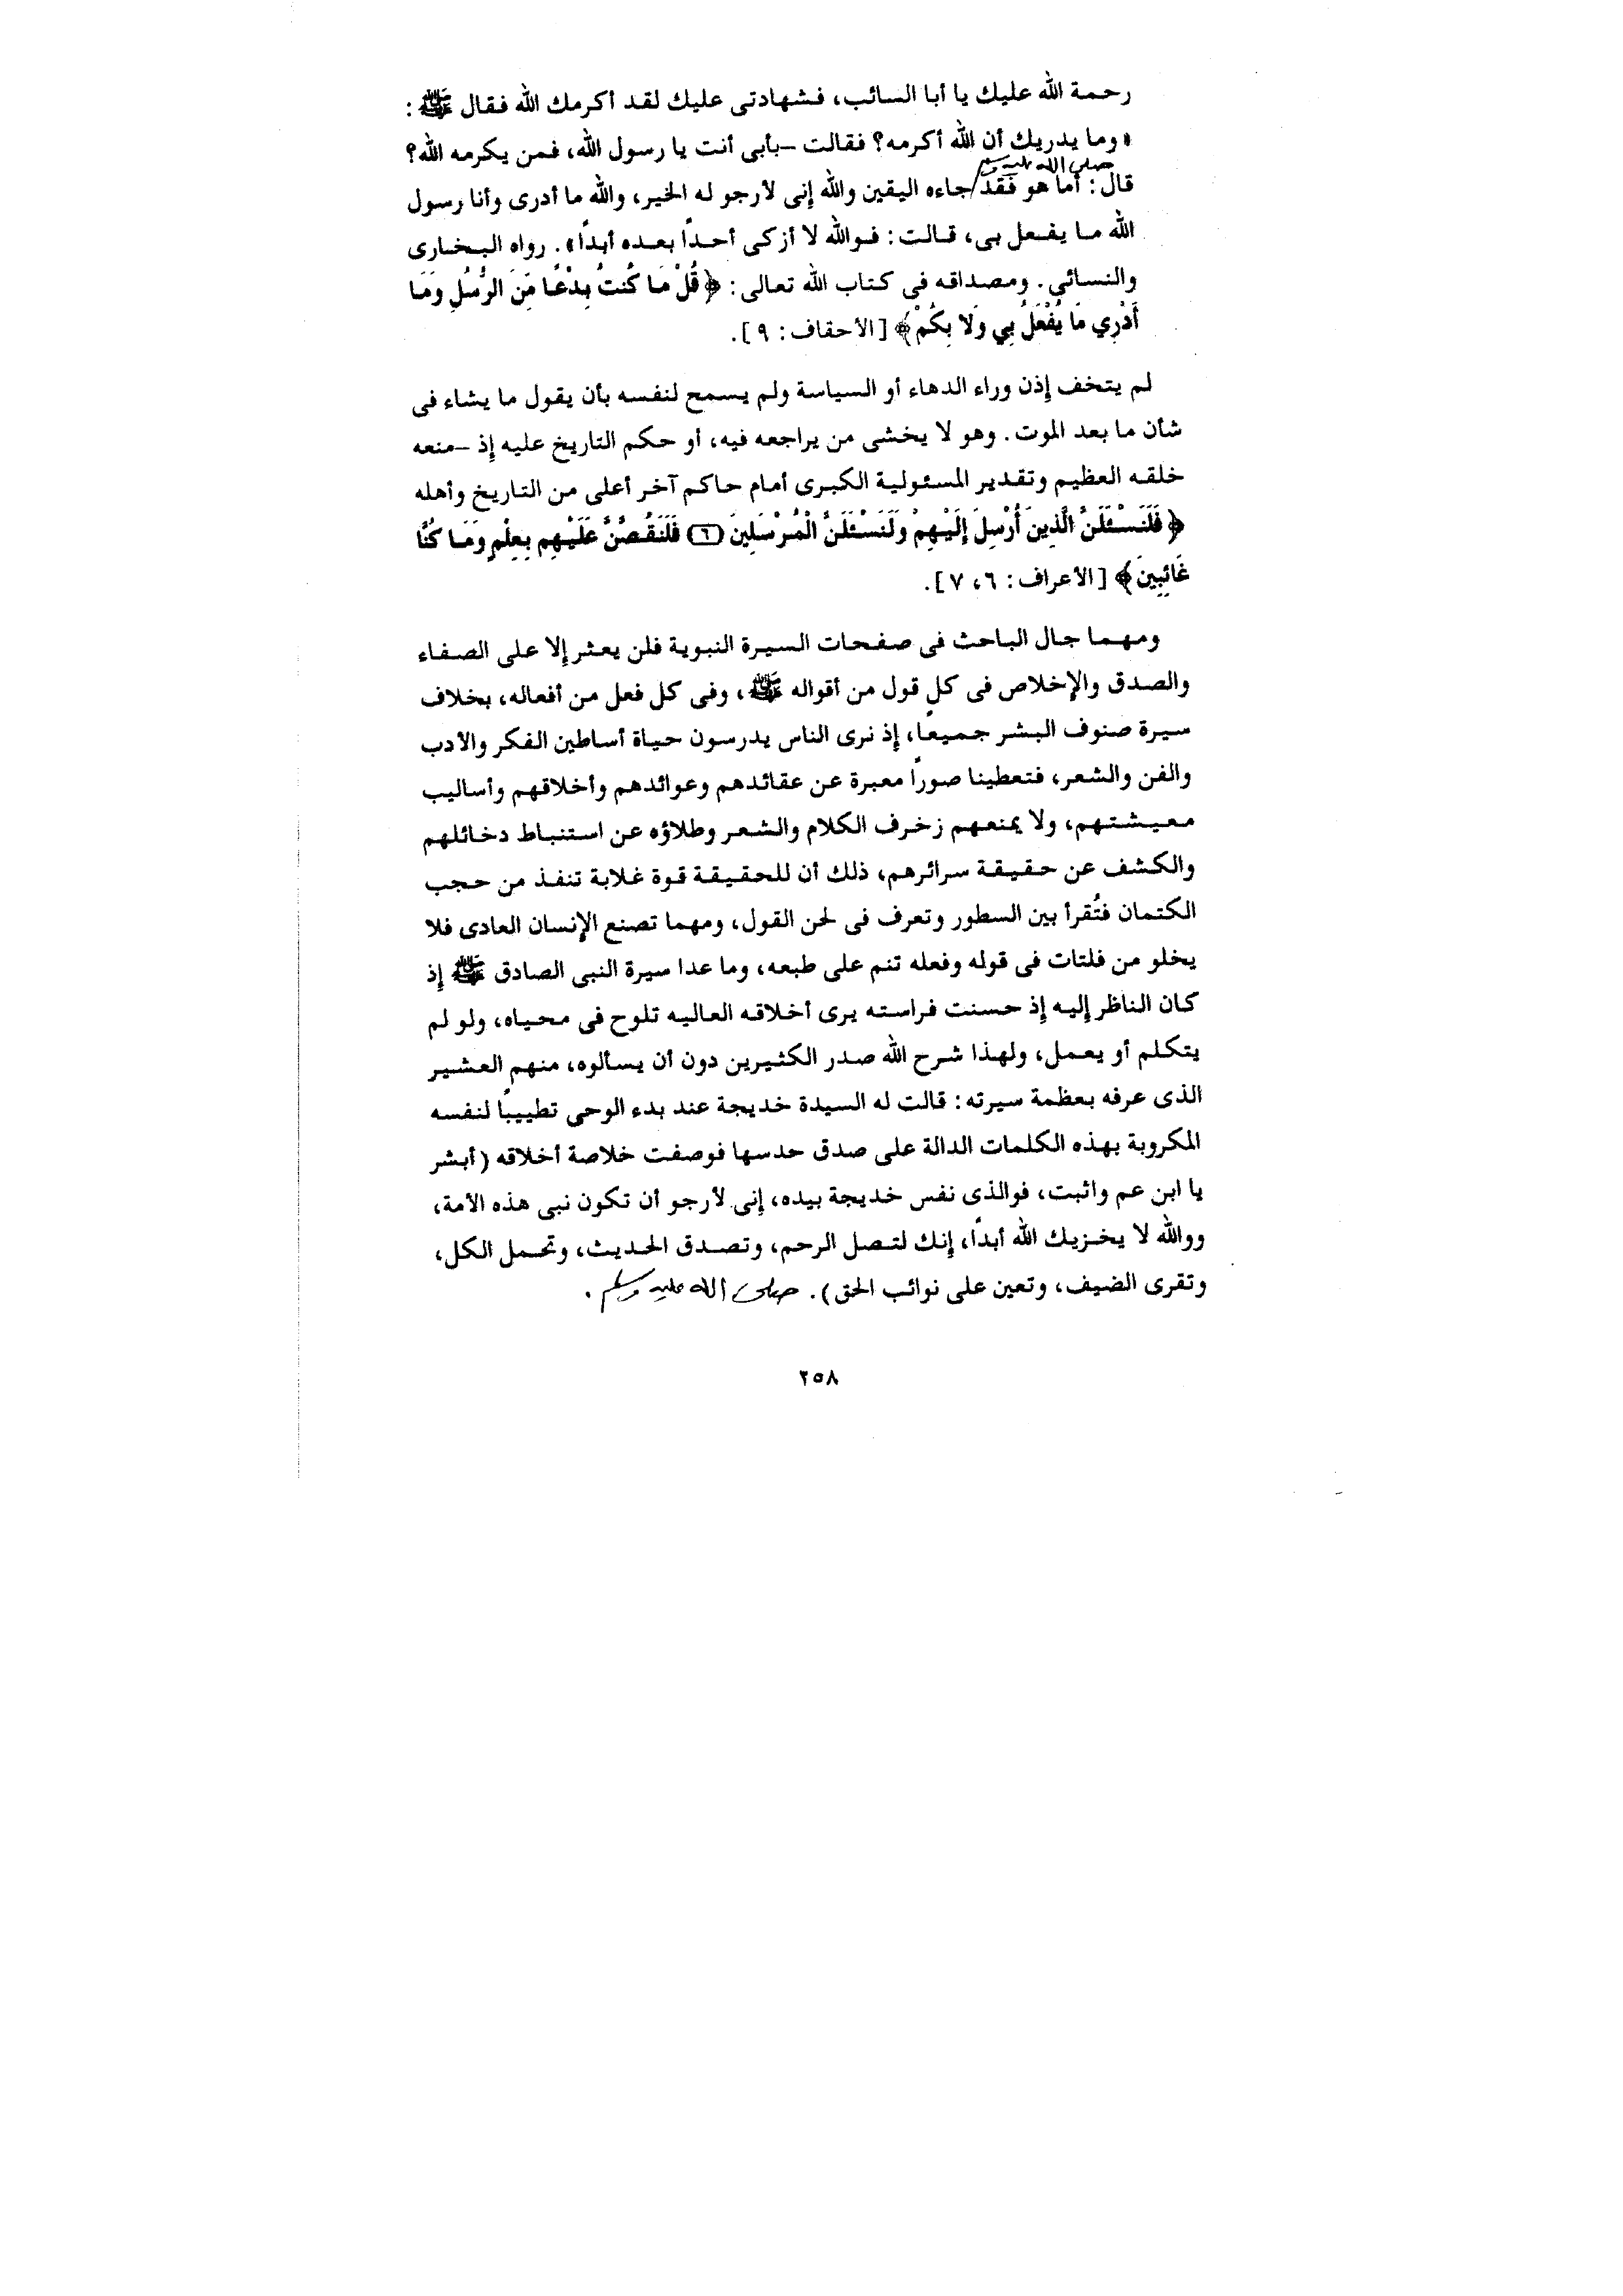 رحمة الله عليك يا أبا السائب، فشهادتى عليك لقد أكرمك الله فقال ﷺ :
«وما يدريك أن الله أكرمه؟ فقالت –بأبى أنت يا رسول الله، فمن يكرمه الله؟
صلى الله عليه وسلم
قال: أما هو فقد / جاءه اليقين والله إنى لأرجو له الخير، والله ما أدرى وأنا رسول
الله ما يفعل بى، قالت: فوالله لا أزكى أحدًا بعده أبدًا». رواه البخارى
والنسائى. ومصداقه فى كتاب الله تعالى: ﴿قُلْ مَا كُنتُ بِدْعًا مِّنَ الرُّسُلِ وَمَا
أَدْرِي مَا يُفْعَلُ بِي وَلَا بِكُمْ﴾ [الأحقاف: ٩].
لم يتخف إذن وراء الدهاء أو السياسة ولم يسمح لنفسه بأن يقول ما يشاء فى
شأن ما بعد الموت. وهو لا يخشى من يراجعه فيه، أو حكم التاريخ عليه إذ –منعه
خلقه العظيم وتقدير المسئولية الكبرى أمام حاكم آخر أعلى من التاريخ وأهله
﴿فَلَنَسْئَلَنَّ الَّذِينَ أُرْسِلَ إِلَيْهِمْ وَلَنَسْئَلَنَّ الْمُرْسَلِينَ (٦) فَلَنَقُصَّنَّ عَلَيْهِم بِعِلْمٍ وَمَا كُنَّا
غَائِبِينَ﴾ [الأعراف: ٦، ٧].
ومهما جال الباحث فى صفحات السيرة النبوية فلن يعثر إلا على الصفاء
والصدق والإخلاص فى كل قول من أقواله ﷺ، وفى كل فعل من أفعاله، بخلاف
سيرة صنوف البشر جميعًا، إذ نرى الناس يدرسون حياة أساطين الفكر والأدب
والفن والشعر، فتعطينا صورًا معبرة عن عقائدهم وعوائدهم وأخلاقهم وأساليب
معيشتهم، ولا يمنعهم زخرف الكلام والشعر وطلاؤه عن استنباط دخائلهم
والكشف عن حقيقة سرائرهم، ذلك أن للحقيقة قوة غلابة تنفذ من حجب
الكتمان فتُقرأ بين السطور وتعرف فى لحن القول، ومهما تصنع الإنسان العادى فلا
يخلو من فلتات فى قوله وفعله تنم على طبعه، وما عدا سيرة النبى الصادق ﷺ إذ
كان الناظر إليه إذ حسنت فراسته يرى أخلاقه العاليه تلوح فى محياه، ولو لم
يتكلم أو يعمل، ولهذا شرح الله صدر الكثيرين دون أن يسألوه، منهم العشير
الذى عرفه بعظمة سيرته: قالت له السيدة خديجة عند بدء الوحى تطييبًا لنفسه
المكروبة بهذه الكلمات الدالة على صدق حدسها فوصفت خلاصة أخلاقه (أبشر
يا ابن عم واثبت، فوالذى نفس خديجة بيده، إنى لأرجو أن تكون نبى هذه الأمة،
ووالله لا يخزيك الله أبدًا، إنك لتصل الرحم، وتصدق الحديث، وتحمل الكل،
وتقرى الضيف، وتعين على نوائب الحق). صلى الله عليه وسلم .
٢٥٨